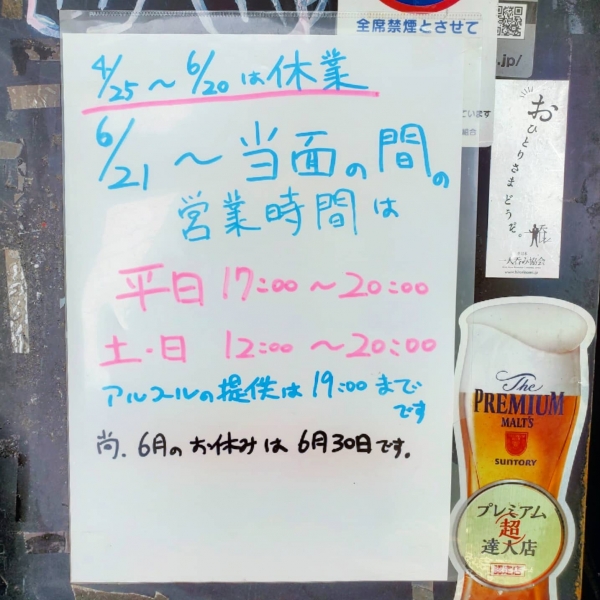 4/25～6/20は休業
6/21～当面の間の
営業時間は
平日 17:00～20:00
土・日 12:00～20:00
アルコールの提供は19:00まで
です
尚、6月のお休みは6月30日です。
全席禁煙とさせて
.jp/
おひとりさまどうぞ。
一人呑み協会
The
PREMIUM
MALT'S
SUNTORY
プレミアム
超
達人店